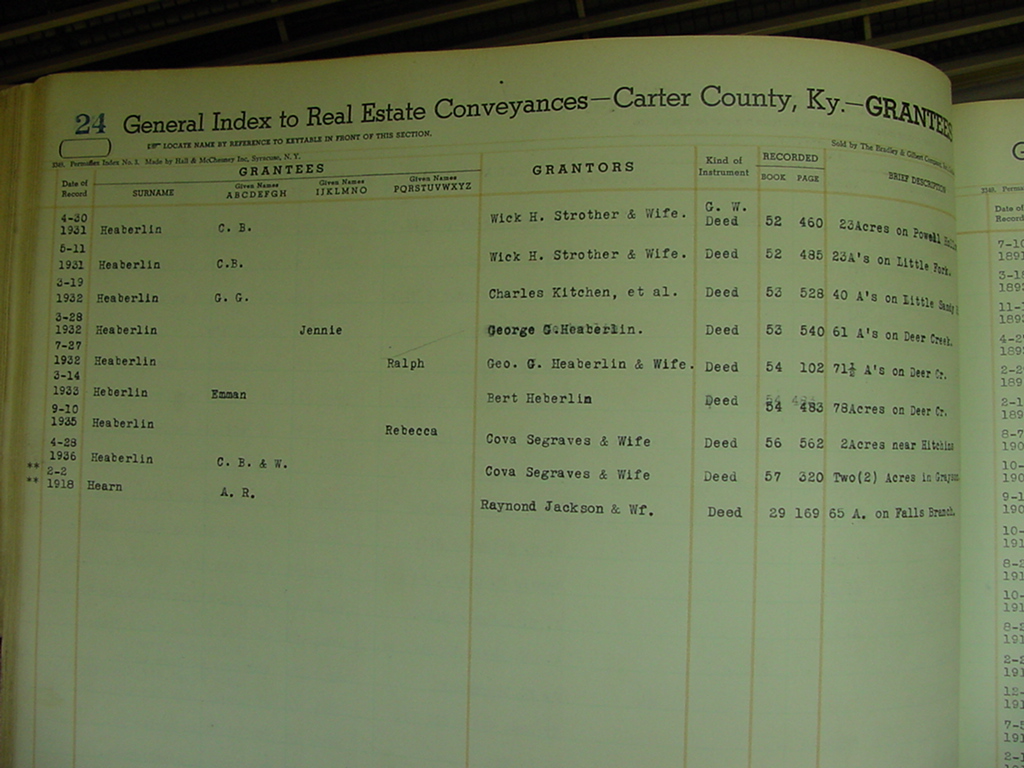 24 General Index to Real Estate Conveyances—Carter County, Ky.—GRANTEES
LOCATE NAME BY REFERENCE TO KEYTABLE IN FRONT OF THIS SECTION.
Made by Hall & McChesney Inc, Syracuse, N. Y.
Sold by The Bradley & Gilbert Company,
Date of Record GRANTEES GRANTORS Kind of Instrument RECORDED BRIEF DESCRIPTION
SURNAME Given Names ABCDEFGH Given Names IJKLMNO Given Names PQRSTUVWXYZ BOOK PAGE
4-30 1931 Heaberlin C. B. Wick H. Strother & Wife. G. W. Deed 52 460 23Acres on Powell
5-11 1931 Heaberlin C.B. Wick H. Strother & Wife. Deed 52 485 23A's on Little Fork.
3-19 1932 Heaberlin G. G. Charles Kitchen, et al. Deed 53 528 40 A's on Little Sandy
3-28 1932 Heaberlin Jennie George G.Heaberlin. Deed 53 540 61 A's on Deer Creek.
7-27 1932 Heaberlin Ralph Geo. G. Heaberlin & Wife. Deed 54 102 71½ A's on Deer Cr.
3-14 1933 Heberlin Emman Bert Heberlin Deed 54 483 78Acres on Deer Cr.
9-10 1935 Heaberlin Rebecca Cova Segraves & Wife Deed 56 562 2Acres near Hitchins
4-28 1936 Heaberlin C. B. & W. Cova Segraves & Wife Deed 57 320 Two(2) Acres in Grayson
** 2-2
** 1918 Hearn A. R. Raynond Jackson & Wf. Deed 29 169 65 A. on Falls Branch.
G
Date of
Record
7-10
1891
3-1
189
11-
189
4-2
189
2-2
189
2-1
189
8-7
190
10-
190
9-1
190
10-
191
8-2
191
10-
191
8-2
191
2-2
191
12-
191
7-5
191
2-1